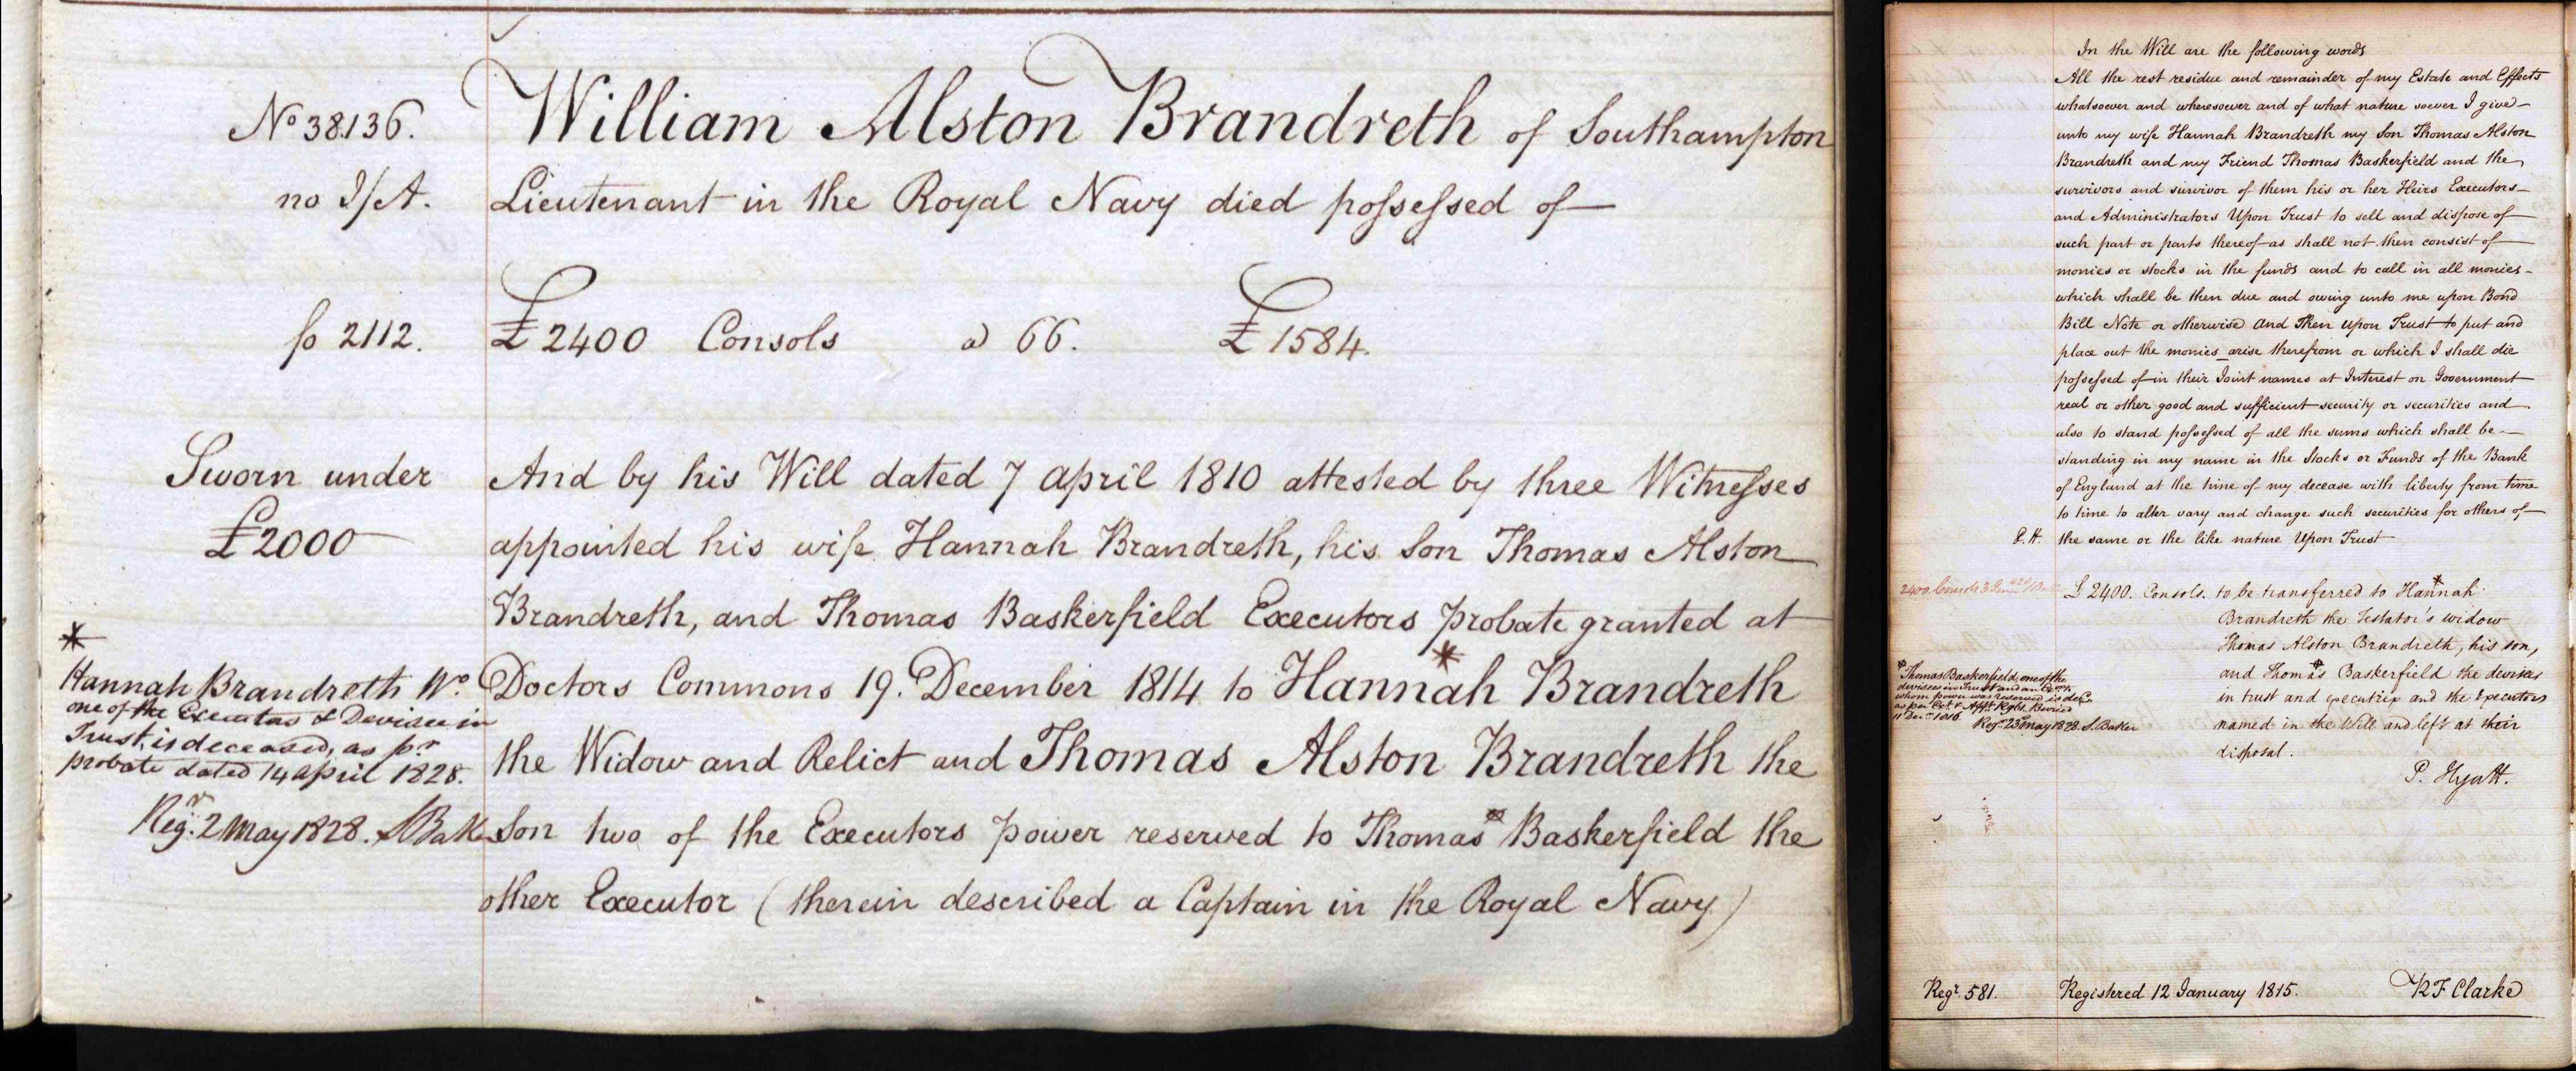 No 38136.
William Alston Brandreth of Southampton
no I/A.
Lieutenant in the Royal Navy died possessed of
fo 2112.
£2400 Consols a 66. £1584.
Sworn under
£2000
And by his Will dated 7 April 1810 attested by three Witnesses
appointed his wife Hannah Brandreth, his Son Thomas Alston
Brandreth, and Thomas Baskerfield Executors probate granted at
Doctors Commons 19. December 1814 to Hannah Brandreth
the Widow and Relict and Thomas Alston Brandreth the
Son two of the Executors power reserved to Thomas Baskerfield the
other Executor (therein described a Captain in the Royal Navy)
*
Hannah Brandreth Wo.
one of the Executors & Devisee in
Trust, is deceased, as pr
probate dated 14 April 1828.
Regr. 2 May 1828. S Baker
In the Will are the following words
All the rest residue and remainder of my Estate and Effects
whatsoever and wheresoever and of what nature soever I give
unto my wife Hannah Brandreth my Son Thomas Alston
Brandreth and my Friend Thomas Baskerfield and the
survivors and survivor of them his or her Heirs Executors
and Administrators Upon Trust to sell and dispose of
such part or parts thereof as shall not then consist of
monies or stocks in the funds and to call in all monies
which shall be then due and owing unto me upon Bond
Bill Note or otherwise And Then upon Trust to put and
place out the monies arise therefrom or which I shall die
possessed of in their Joint names at Interest on Government
real or other good and sufficient security or securities and
also to stand possessed of all the sums which shall be
standing in my name in the Stocks or Funds of the Bank
of England at the time of my decease with liberty from time
to time to alter vary and change such securities for others of
P.H. the same or the like nature Upon Trust
2400. Consols
£2400. Consols. to be transferred to Hannah
Brandreth the Testator's widow
Thomas Alston Brandreth, his son,
and Thomas Baskerfield the devisees
in trust and executrix and the Executors
named in the Will and left at their
disposal.
P. Hyatt.
* Thomas Baskerfield, one of the
devisees in Trust and an Exor. to
whom power was reserved is decd.
as per Cert. & Afft. Regd. Buried
11 Decr. 1816.
Regr. 23 May 1828. S. Baker
Regr. 581.
Registered 12 January 1815. R F Clarke